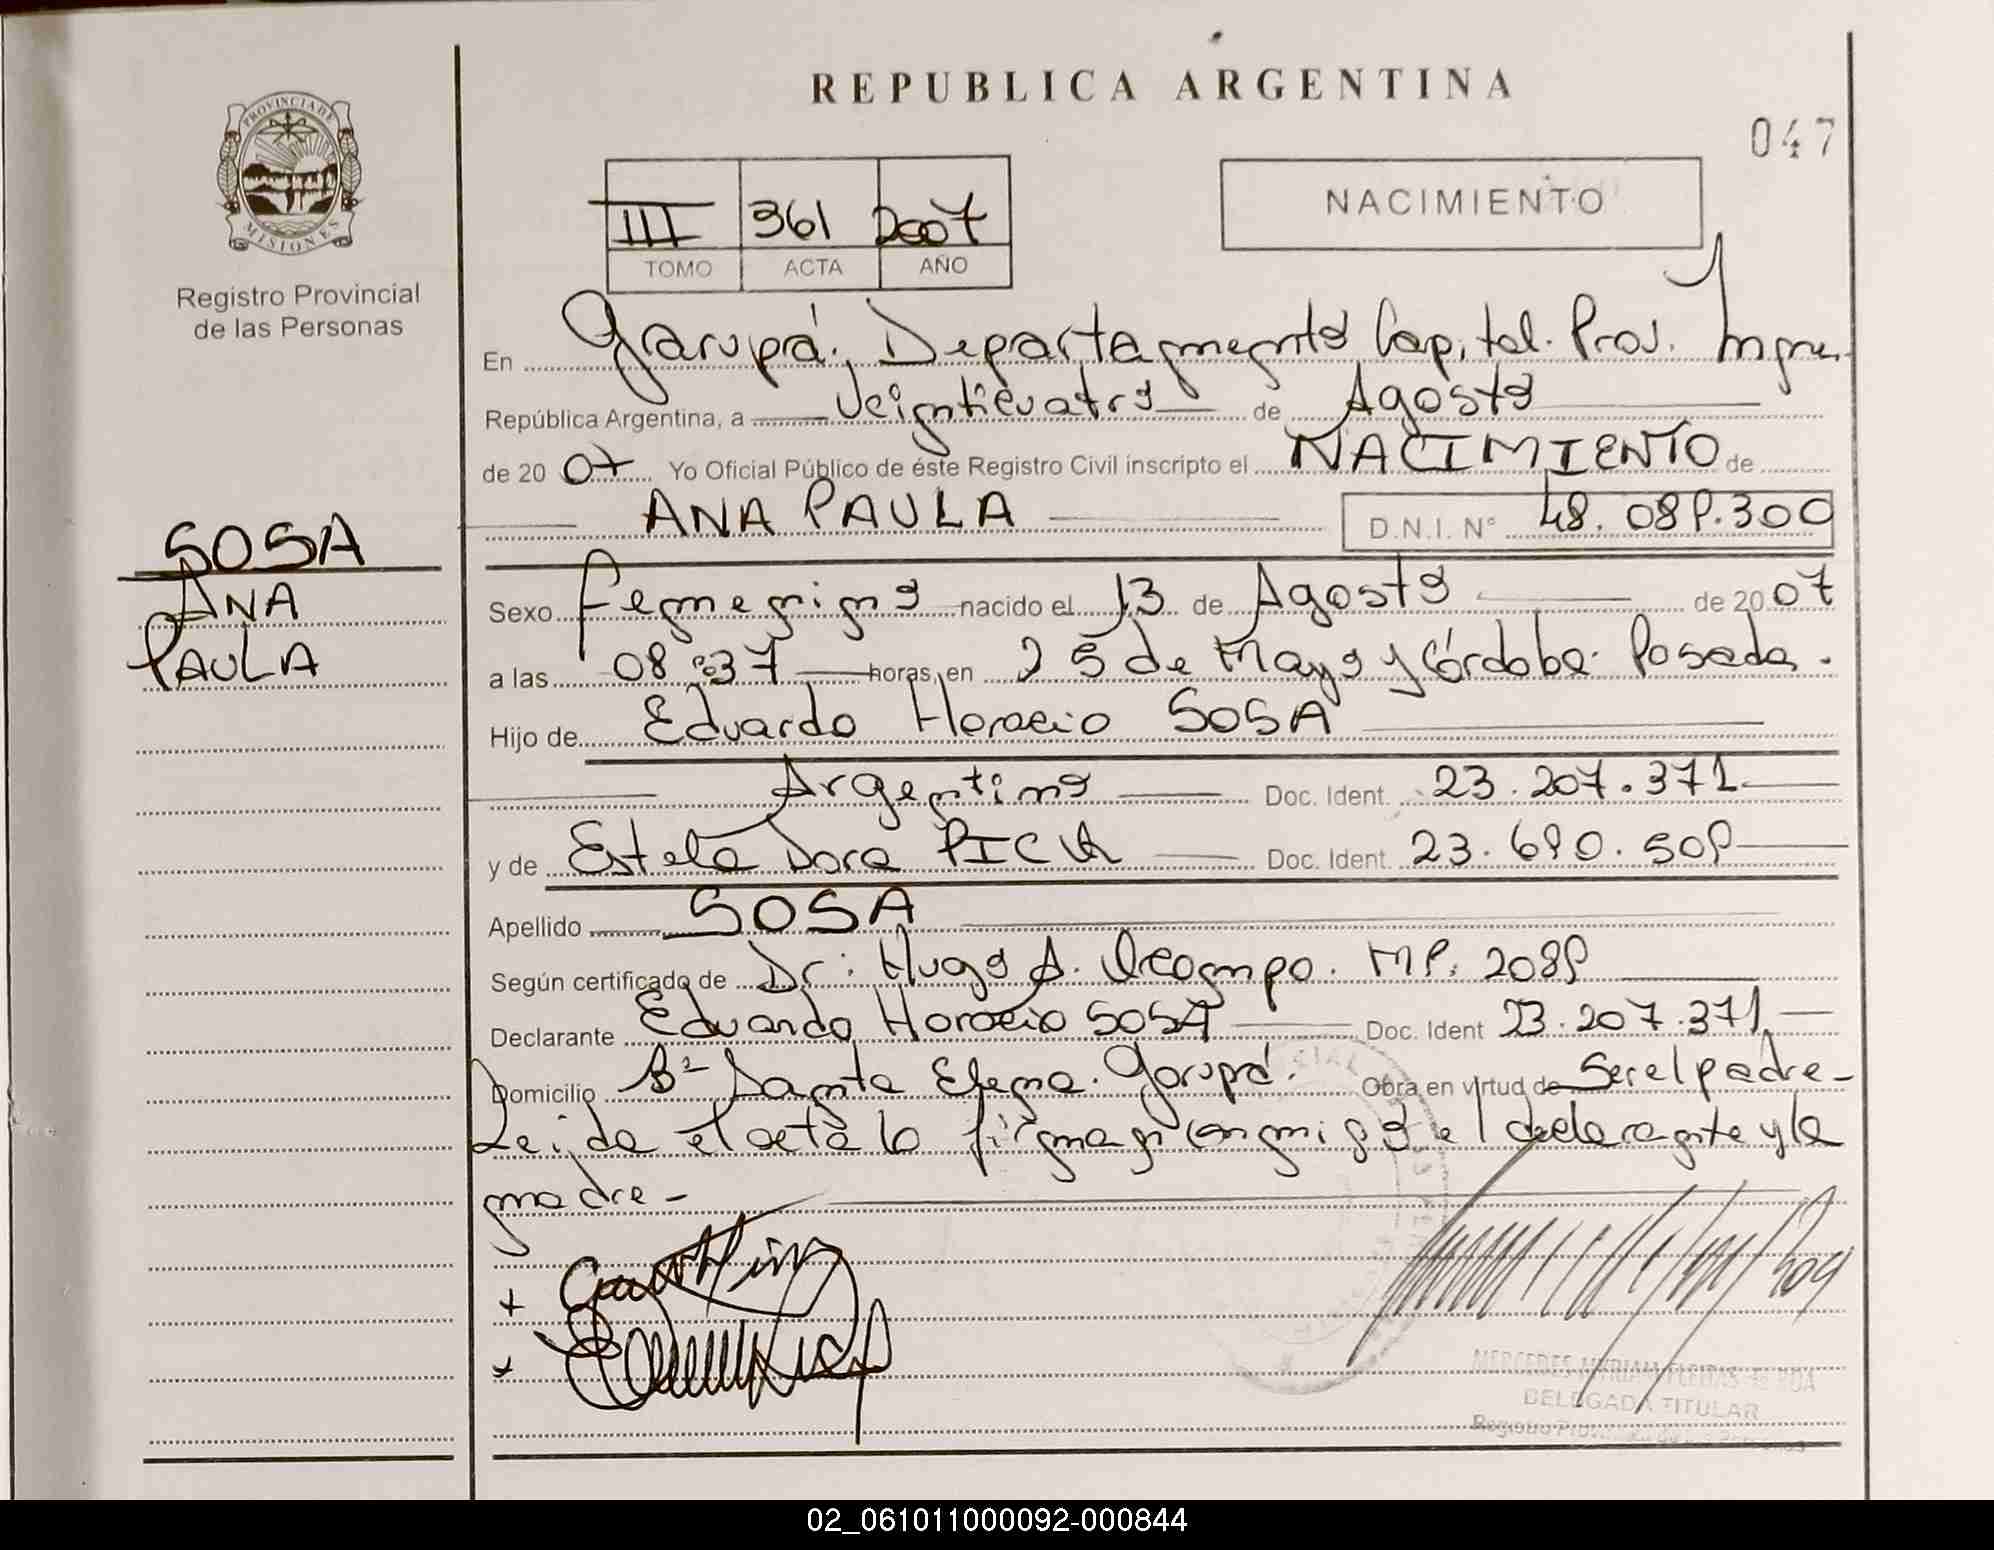 REPUBLICA ARGENTINA
047
PROVINCIA DE
MISIONES
Registro Provincial
de las Personas
III 361 2007
TOMO ACTA AÑO
NACIMIENTO
En Garupá. Departamento Capital. Prov. Mnes.
República Argentina, a veinticuatro de Agosto
de 2007 Yo Oficial Público de éste Registro Civil inscripto el NACIMIENTO de
ANA PAULA D.N.I. N° 48.089.300
SOSA
ANA
PAULA
Sexo Femenino nacido el 13 de Agosto de 2007
a las 08:37 horas, en 25 de Mayo y Córdoba. Posadas.
Hijo de Eduardo Horacio SOSA
Argentino Doc. Ident. 23.207.371
y de Estela Dora Doc. Ident. 23.690.509
Apellido SOSA
Según certificado de Dr. Hugo A. Ocampo. MP. 2089
Declarante Eduardo Horacio SOSA Doc. Ident 23.207.371
Domicilio B° Santa Elena. Garupá. Obra en virtud de ser el padre-
Leida el acta la firman conmigo el declarante y la
madre-
DELEGADA TITULAR
02_061011000092-000844